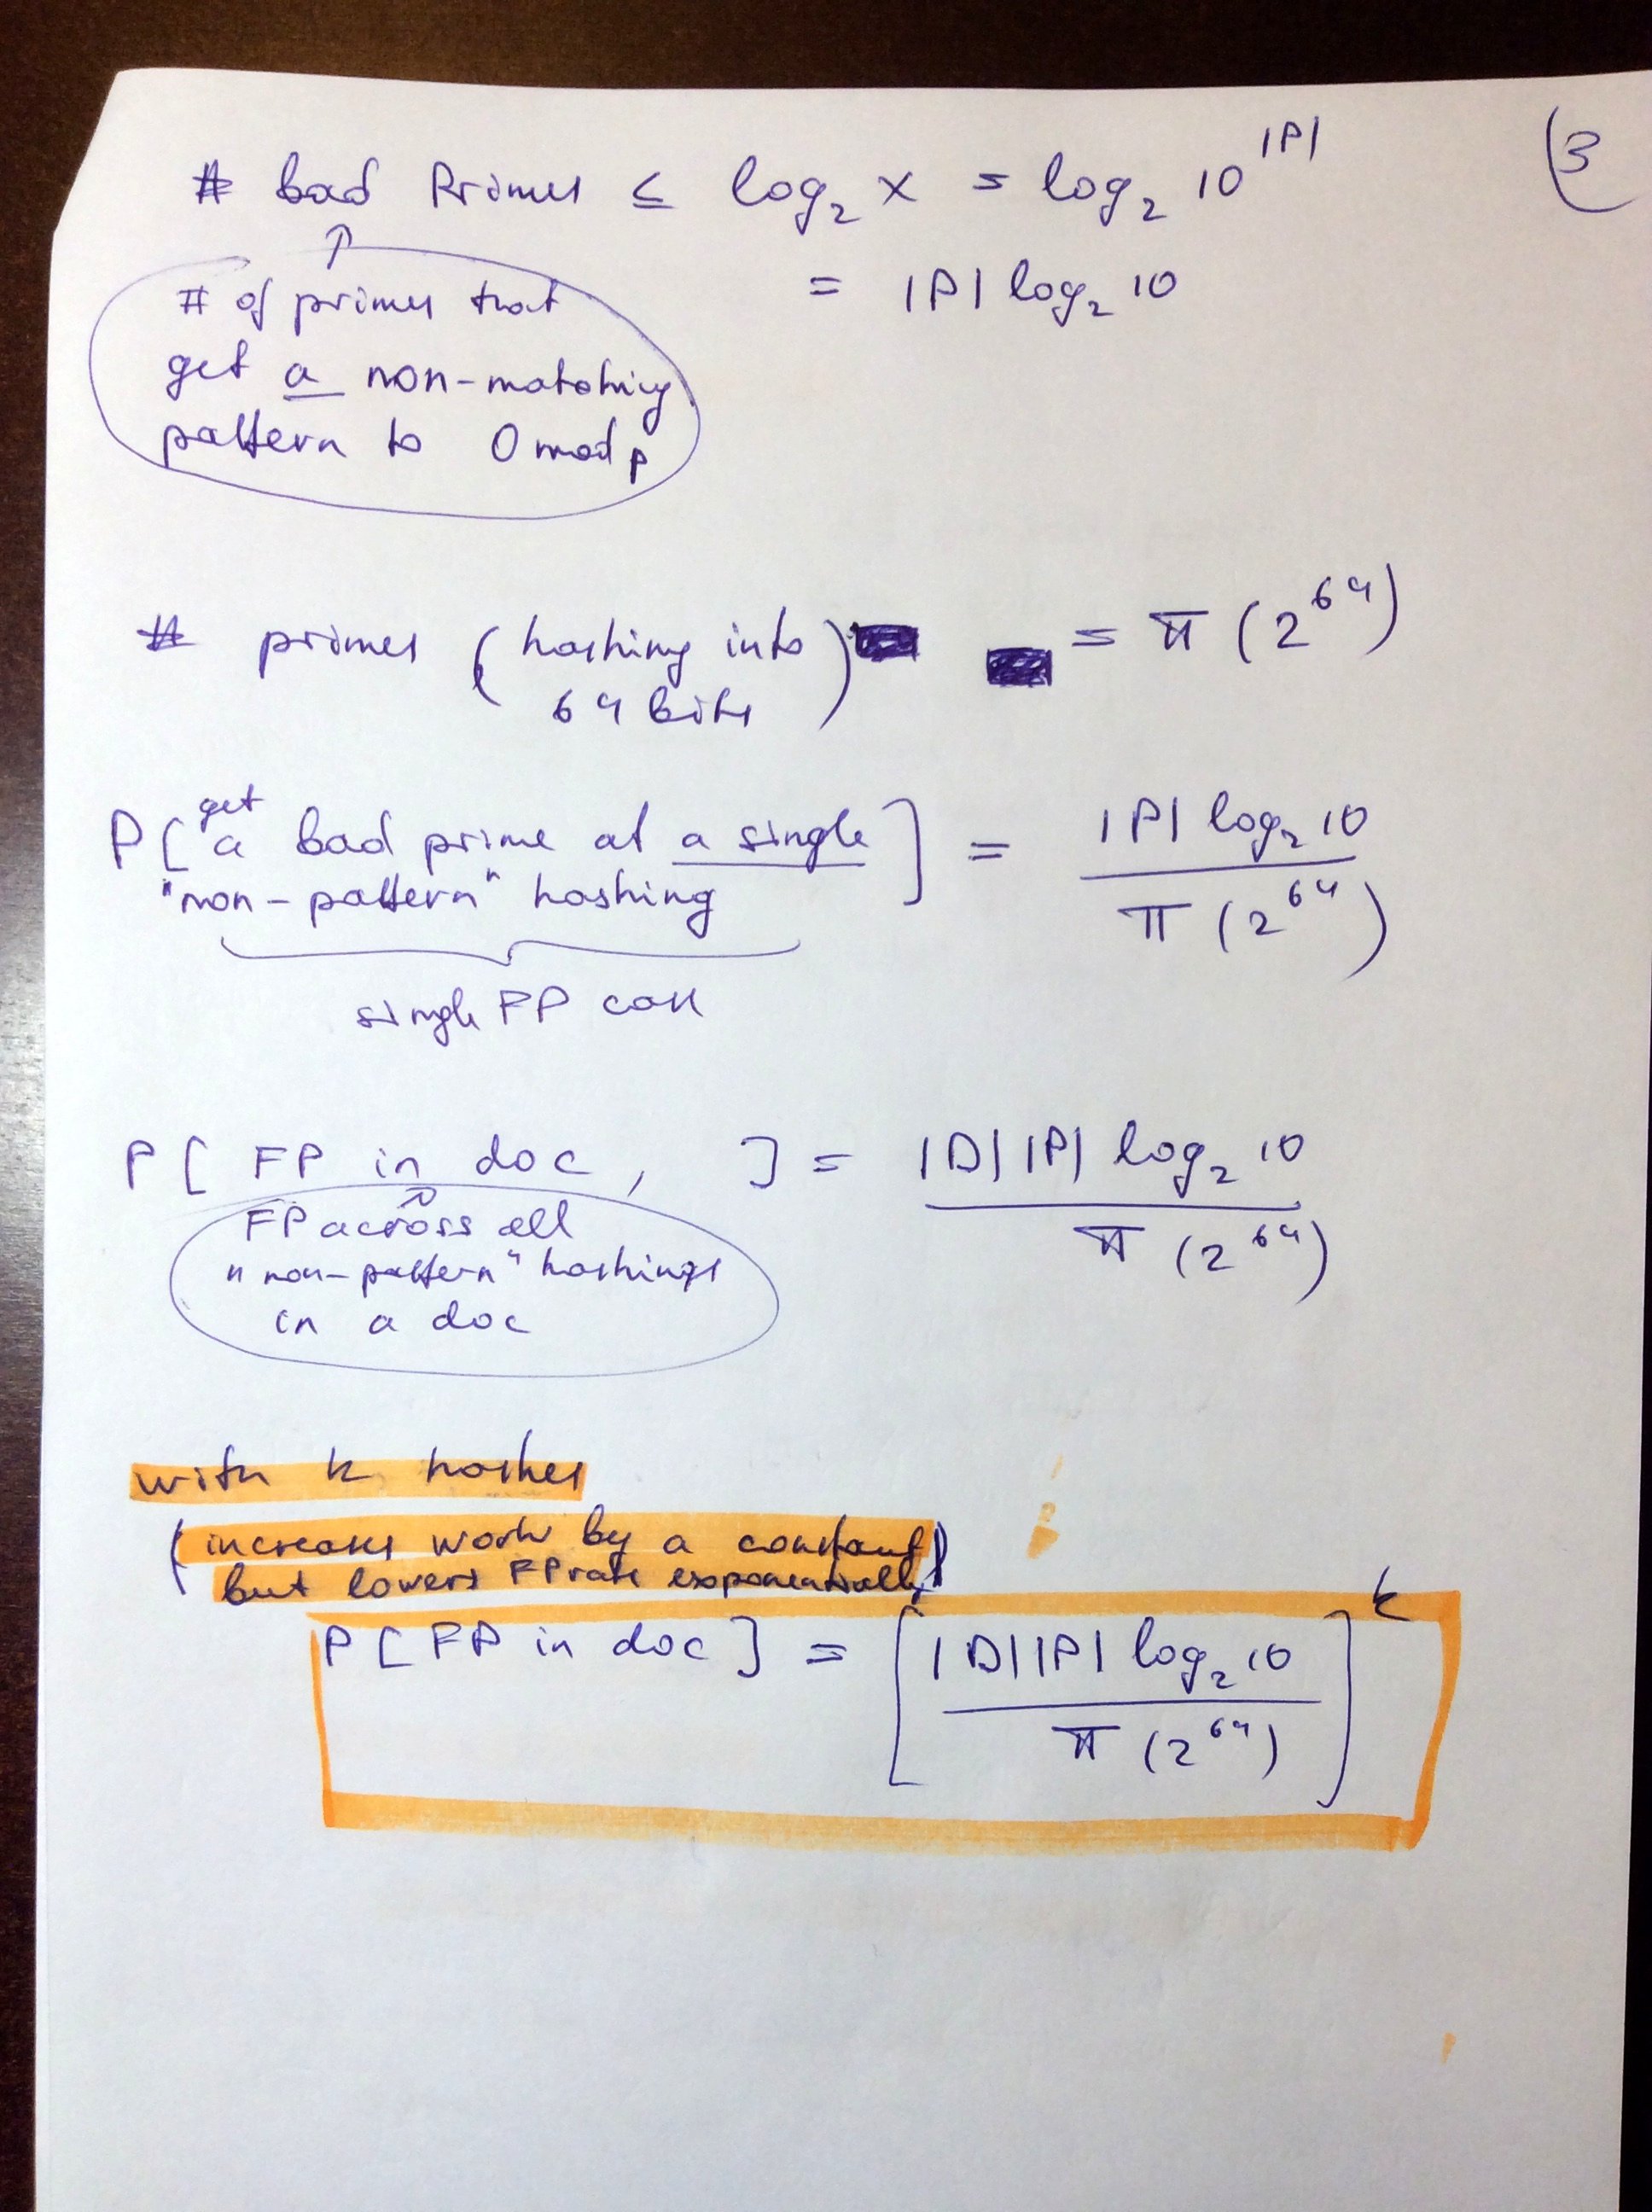 (3
# bad Primes ≤ log₂ x = log₂ 10^|P|
= |P| log₂ 10
# of primes that
get a non-matching
pattern to 0 mod p
# primes (hashing into = π (2^64)
64 bits)
P[ get a bad prime at a single ] = |P| log₂ 10
"non-pattern" hashing π (2^64)
single FP case
P[ FP in doc, ] = |D| |P| log₂ 10
π (2^64)
FP across all
"non-pattern" hashings
in a doc
with k hashes
(increases work by a constant
but lowers FP rate exponentially)
P[ FP in doc ] = [ |D| |P| log₂ 10 ]^k
π (2^64)